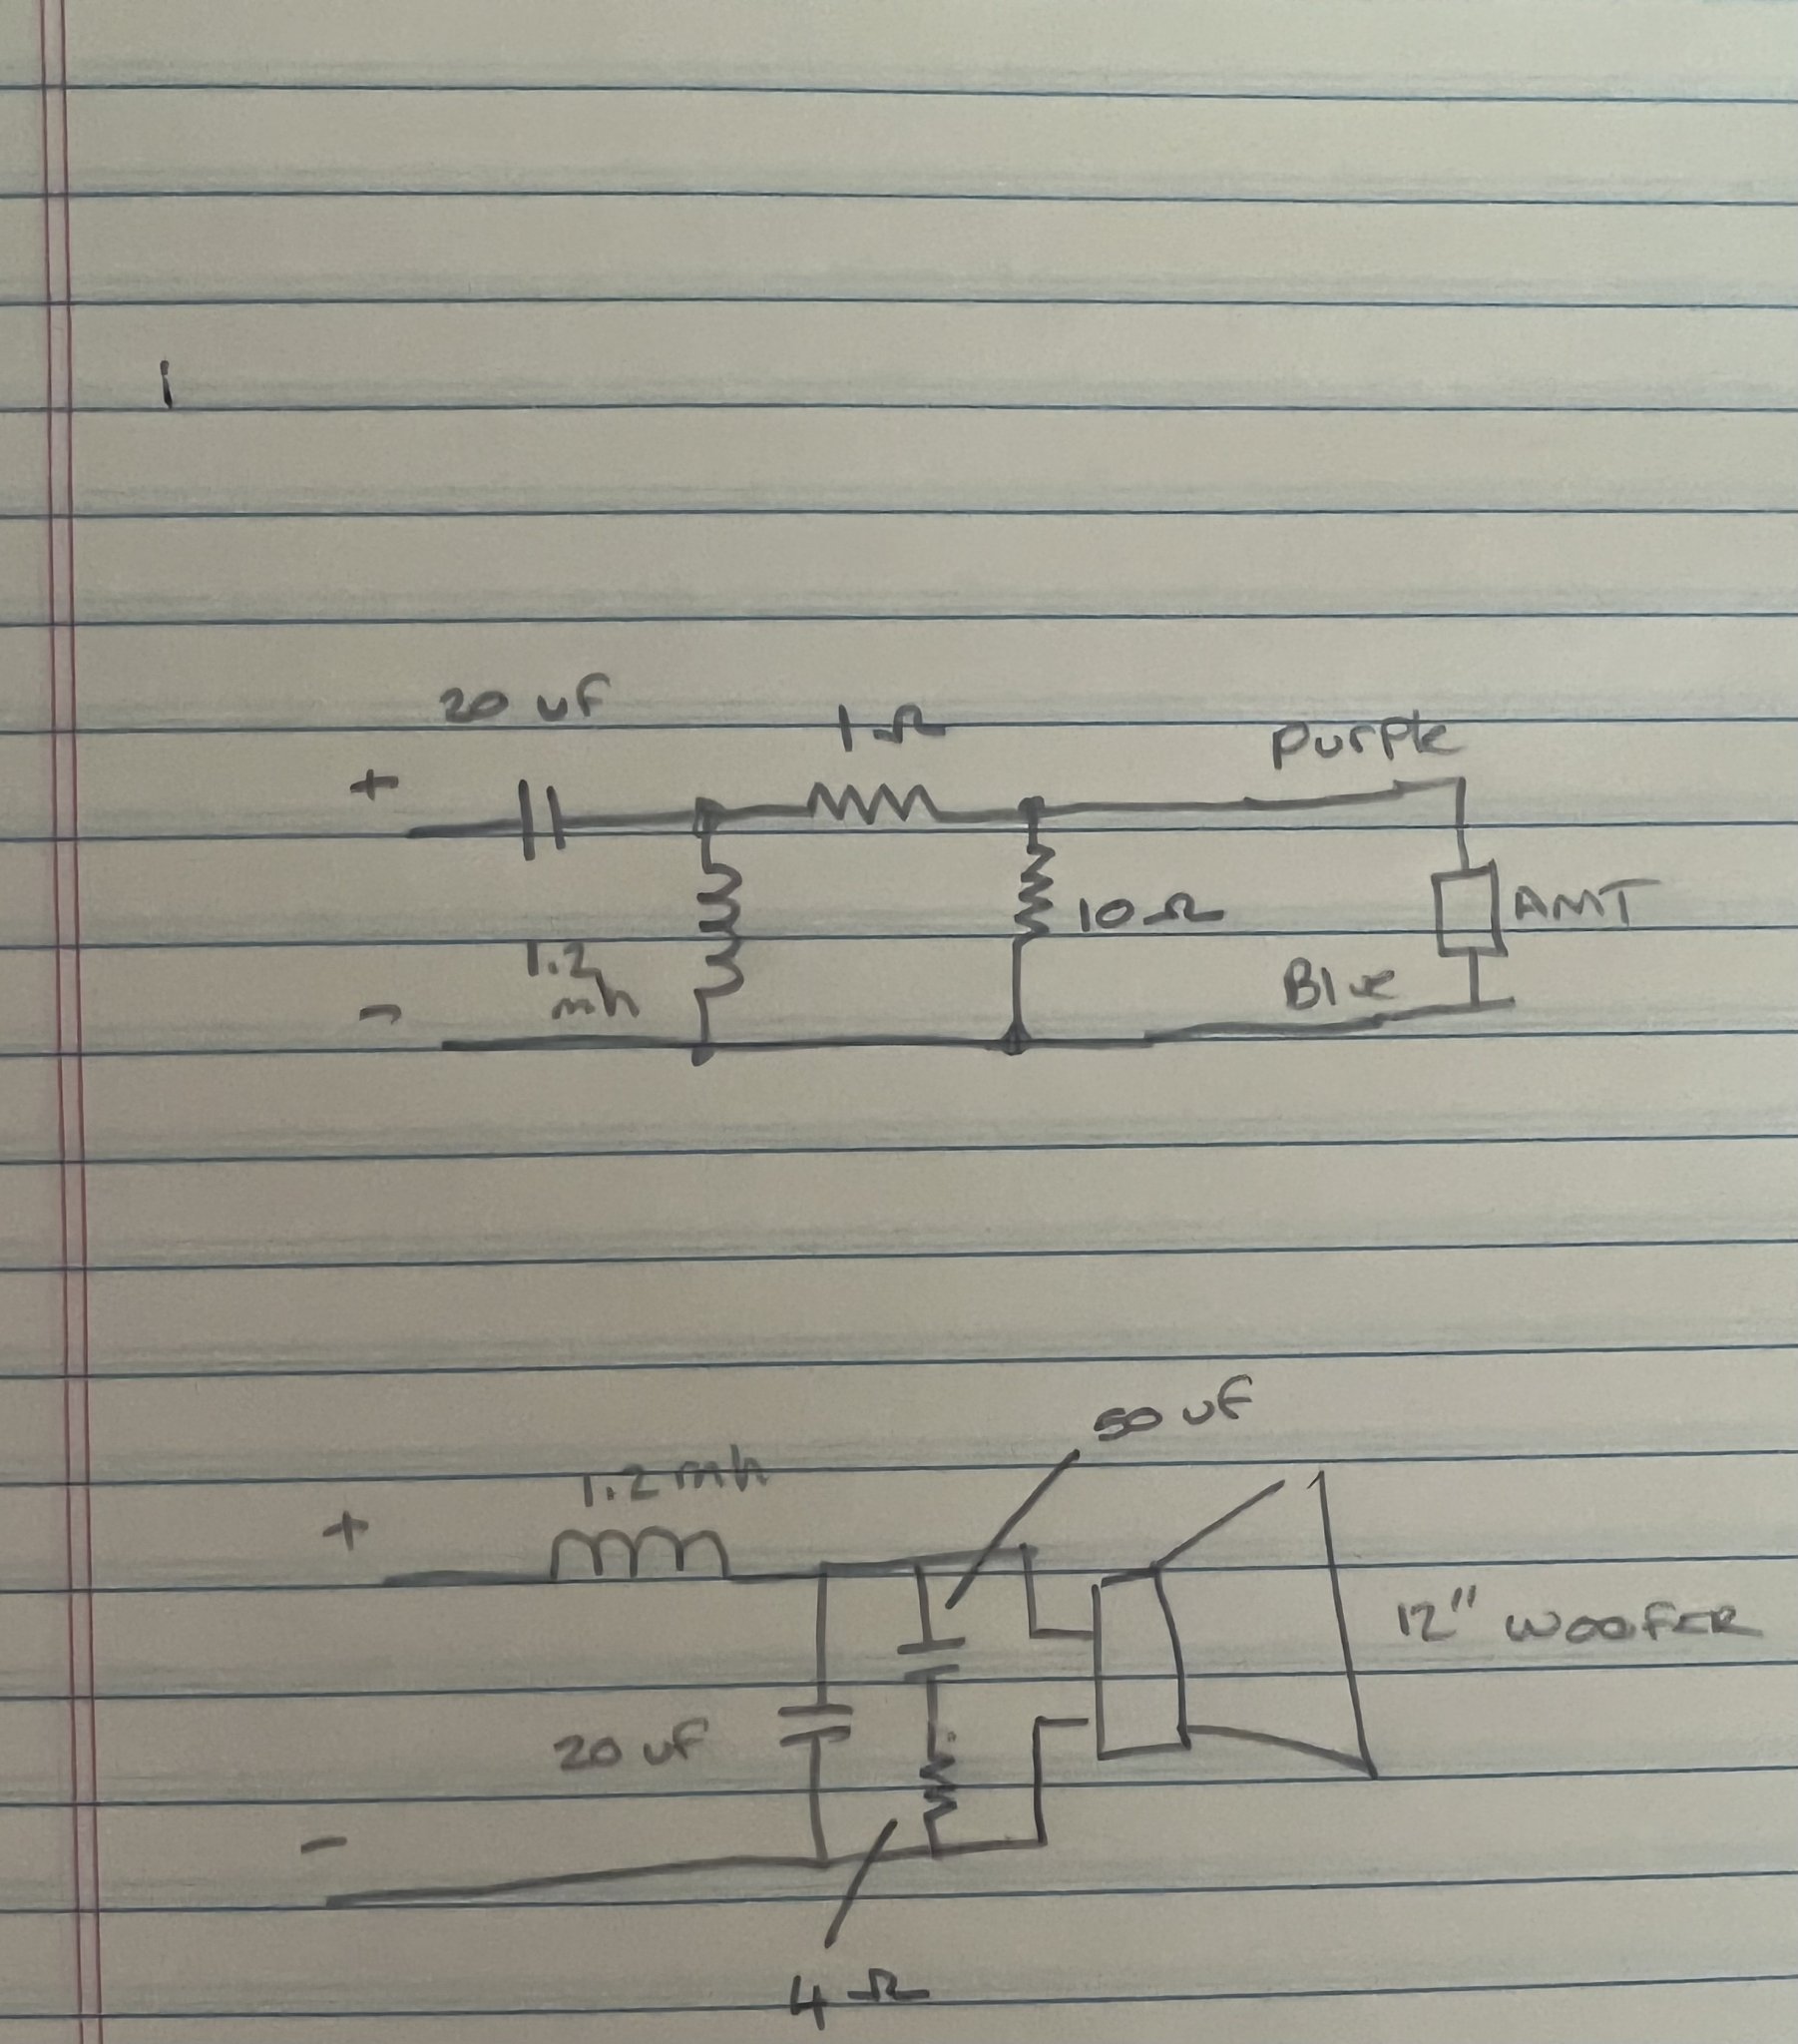 20 uf
1Ω
purple
+
10Ω
AMT
1.2
mh
Blue
-
50 uf
1.2 mh
+
12" WOOFER
20 uf
-
4Ω